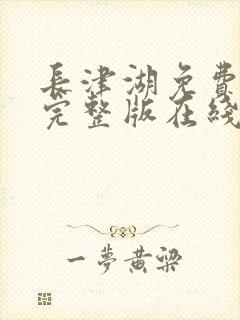 長津湖免費
完整版在綫
一夢黃梁